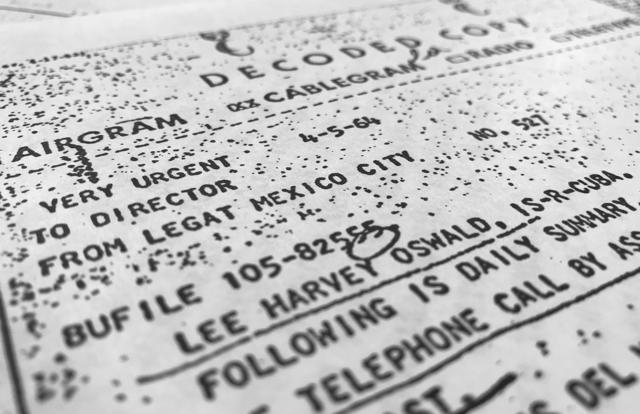 DECODED COPY
AIRGRAM XX CABLEGRAM RADIO
4-5-64 NO. 527
VERY URGENT
TO DIRECTOR
FROM LEGAT MEXICO CITY
BUFILE 105-82555
LEE HARVEY OSWALD, IS-R-CUBA.
FOLLOWING IS DAILY SUMMARY.
TELEPHONE CALL BY ASS
DEL